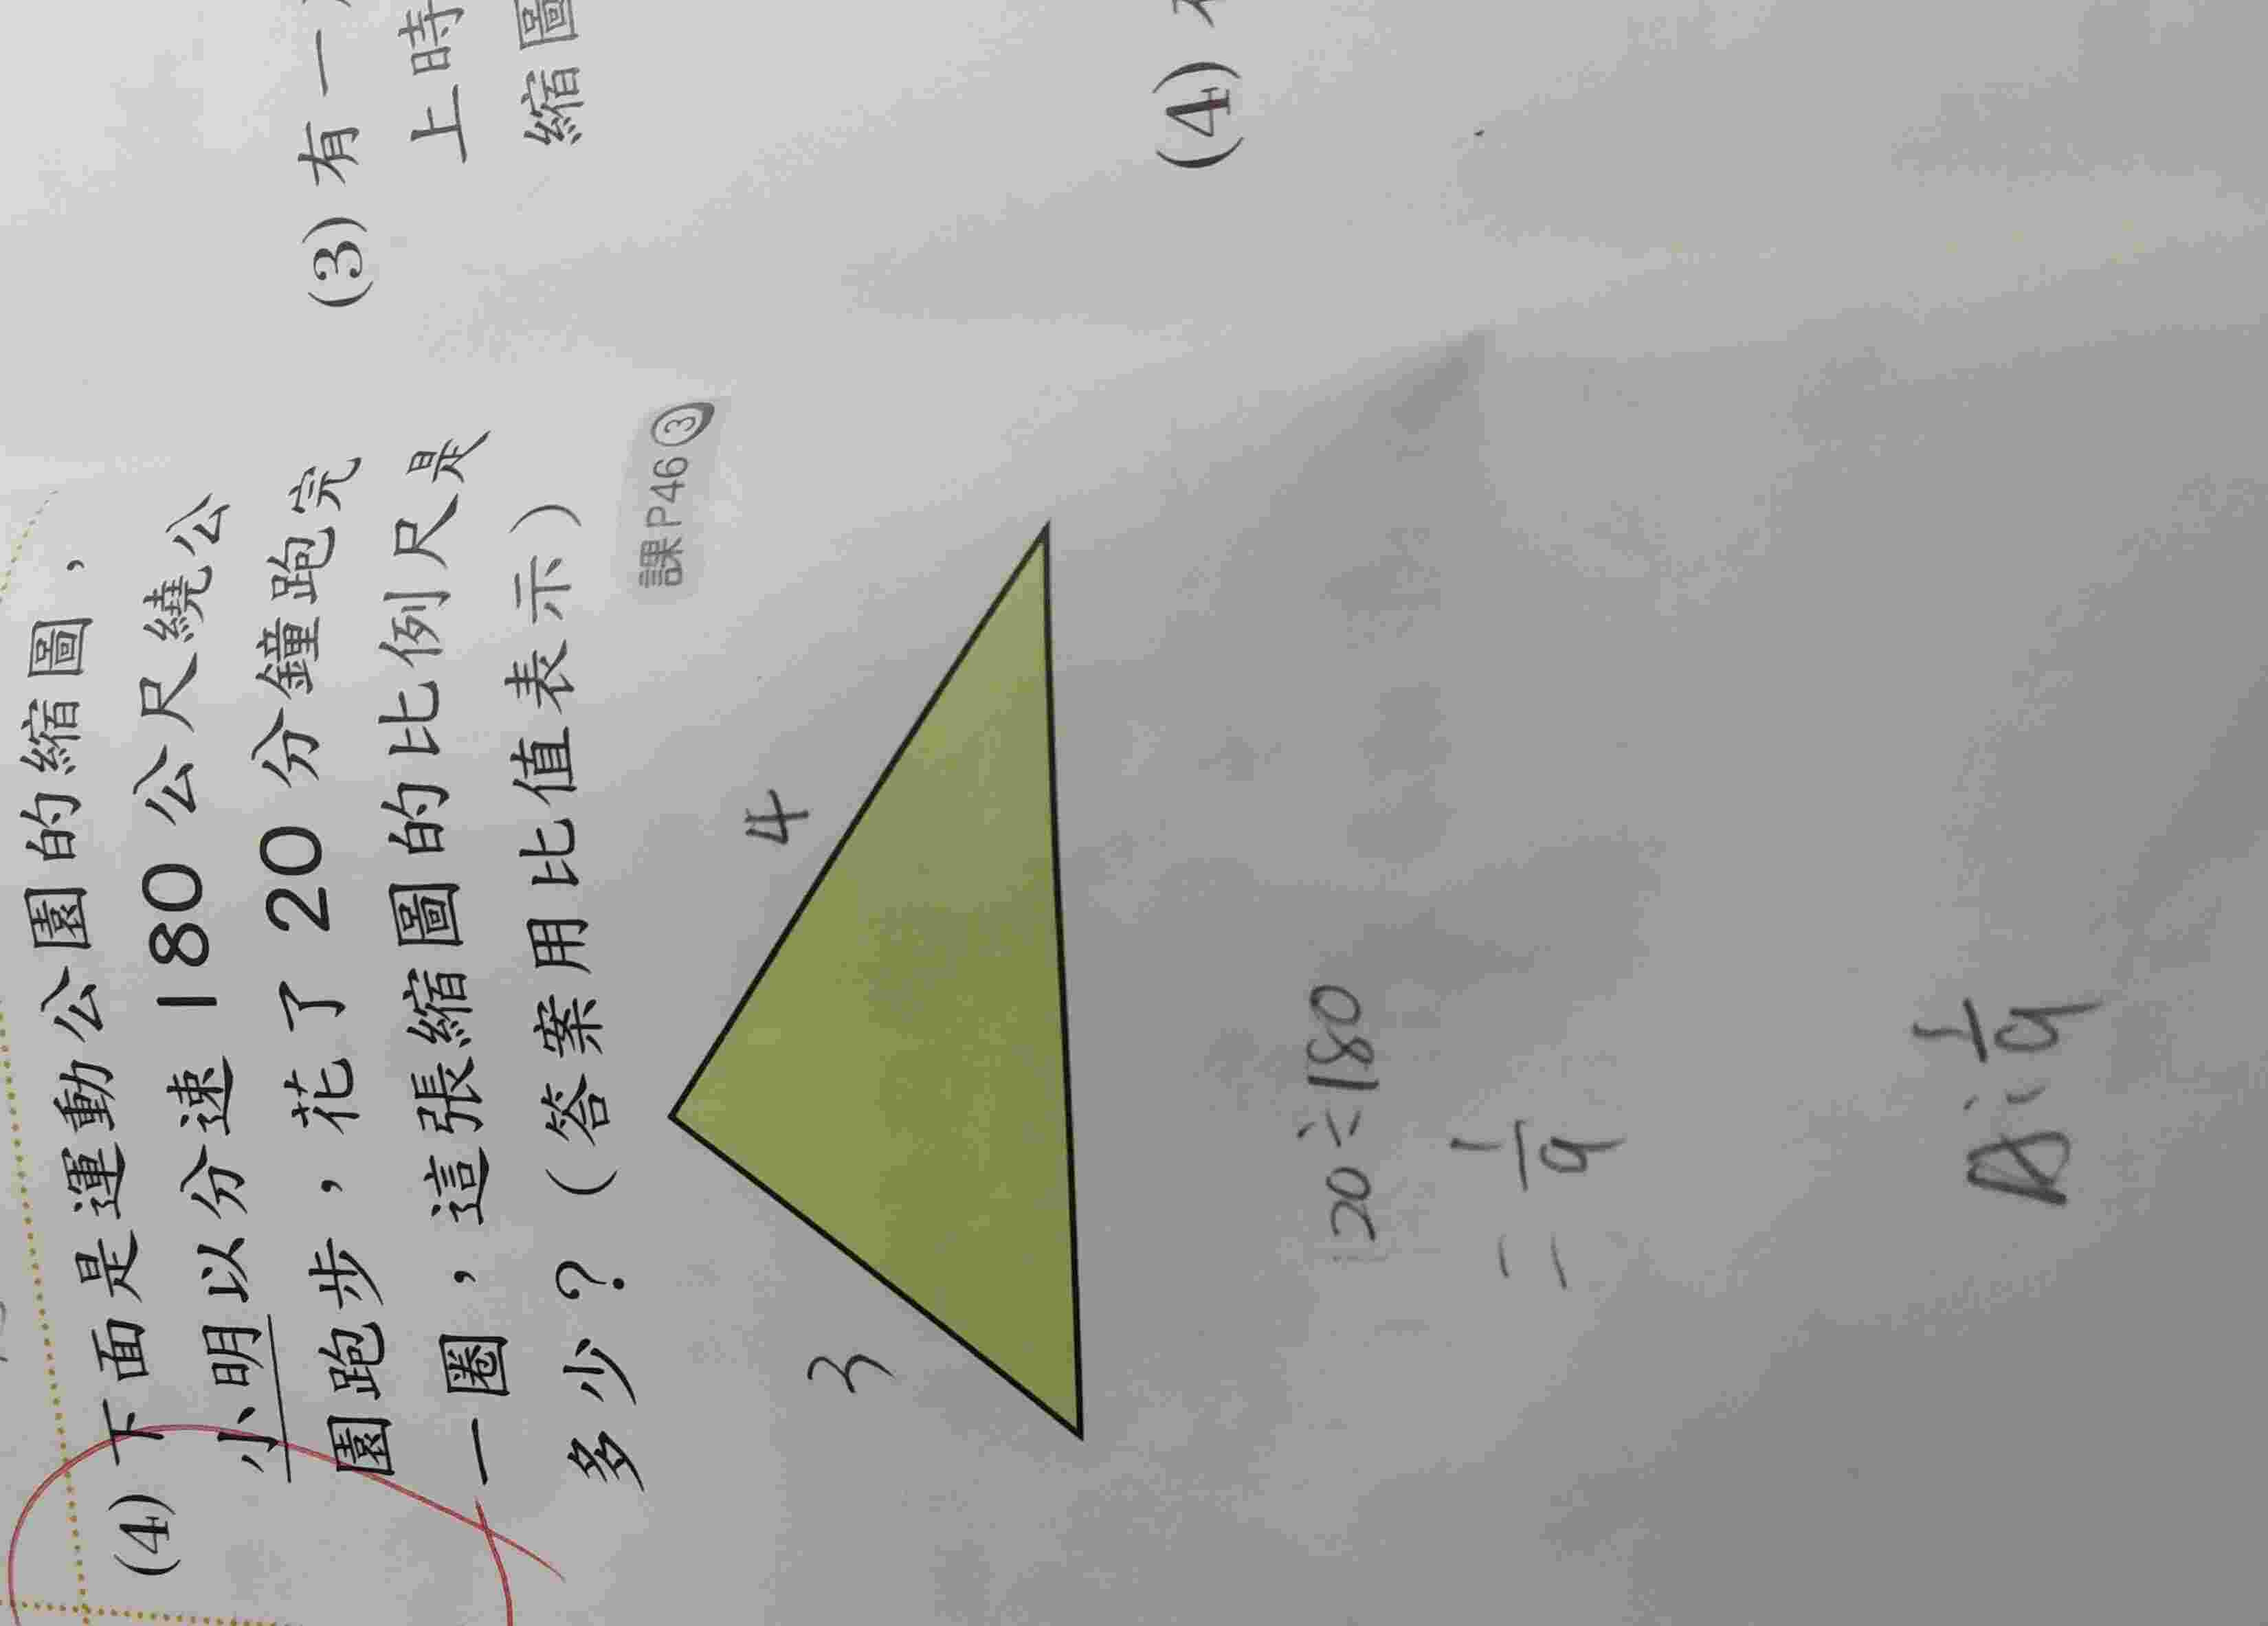 (4) 下面是運動公園的縮圖，
小明以分速 180 公尺繞公
園跑步，花了 20 分鐘跑完
一圈，這張縮圖的比例尺是
多少？（答案用比值表示）
課P46③
3
4
20÷180
= 1/9
A: 1/9
(3) 有一
上時
縮圖
(4)